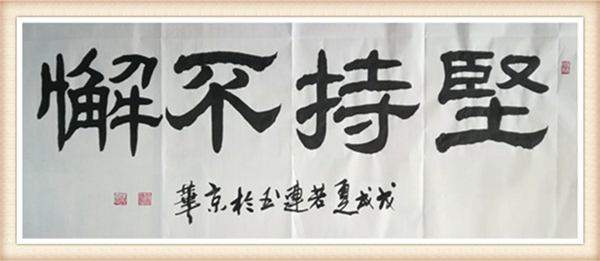 堅持不懈
戊戌夏若連书於京華